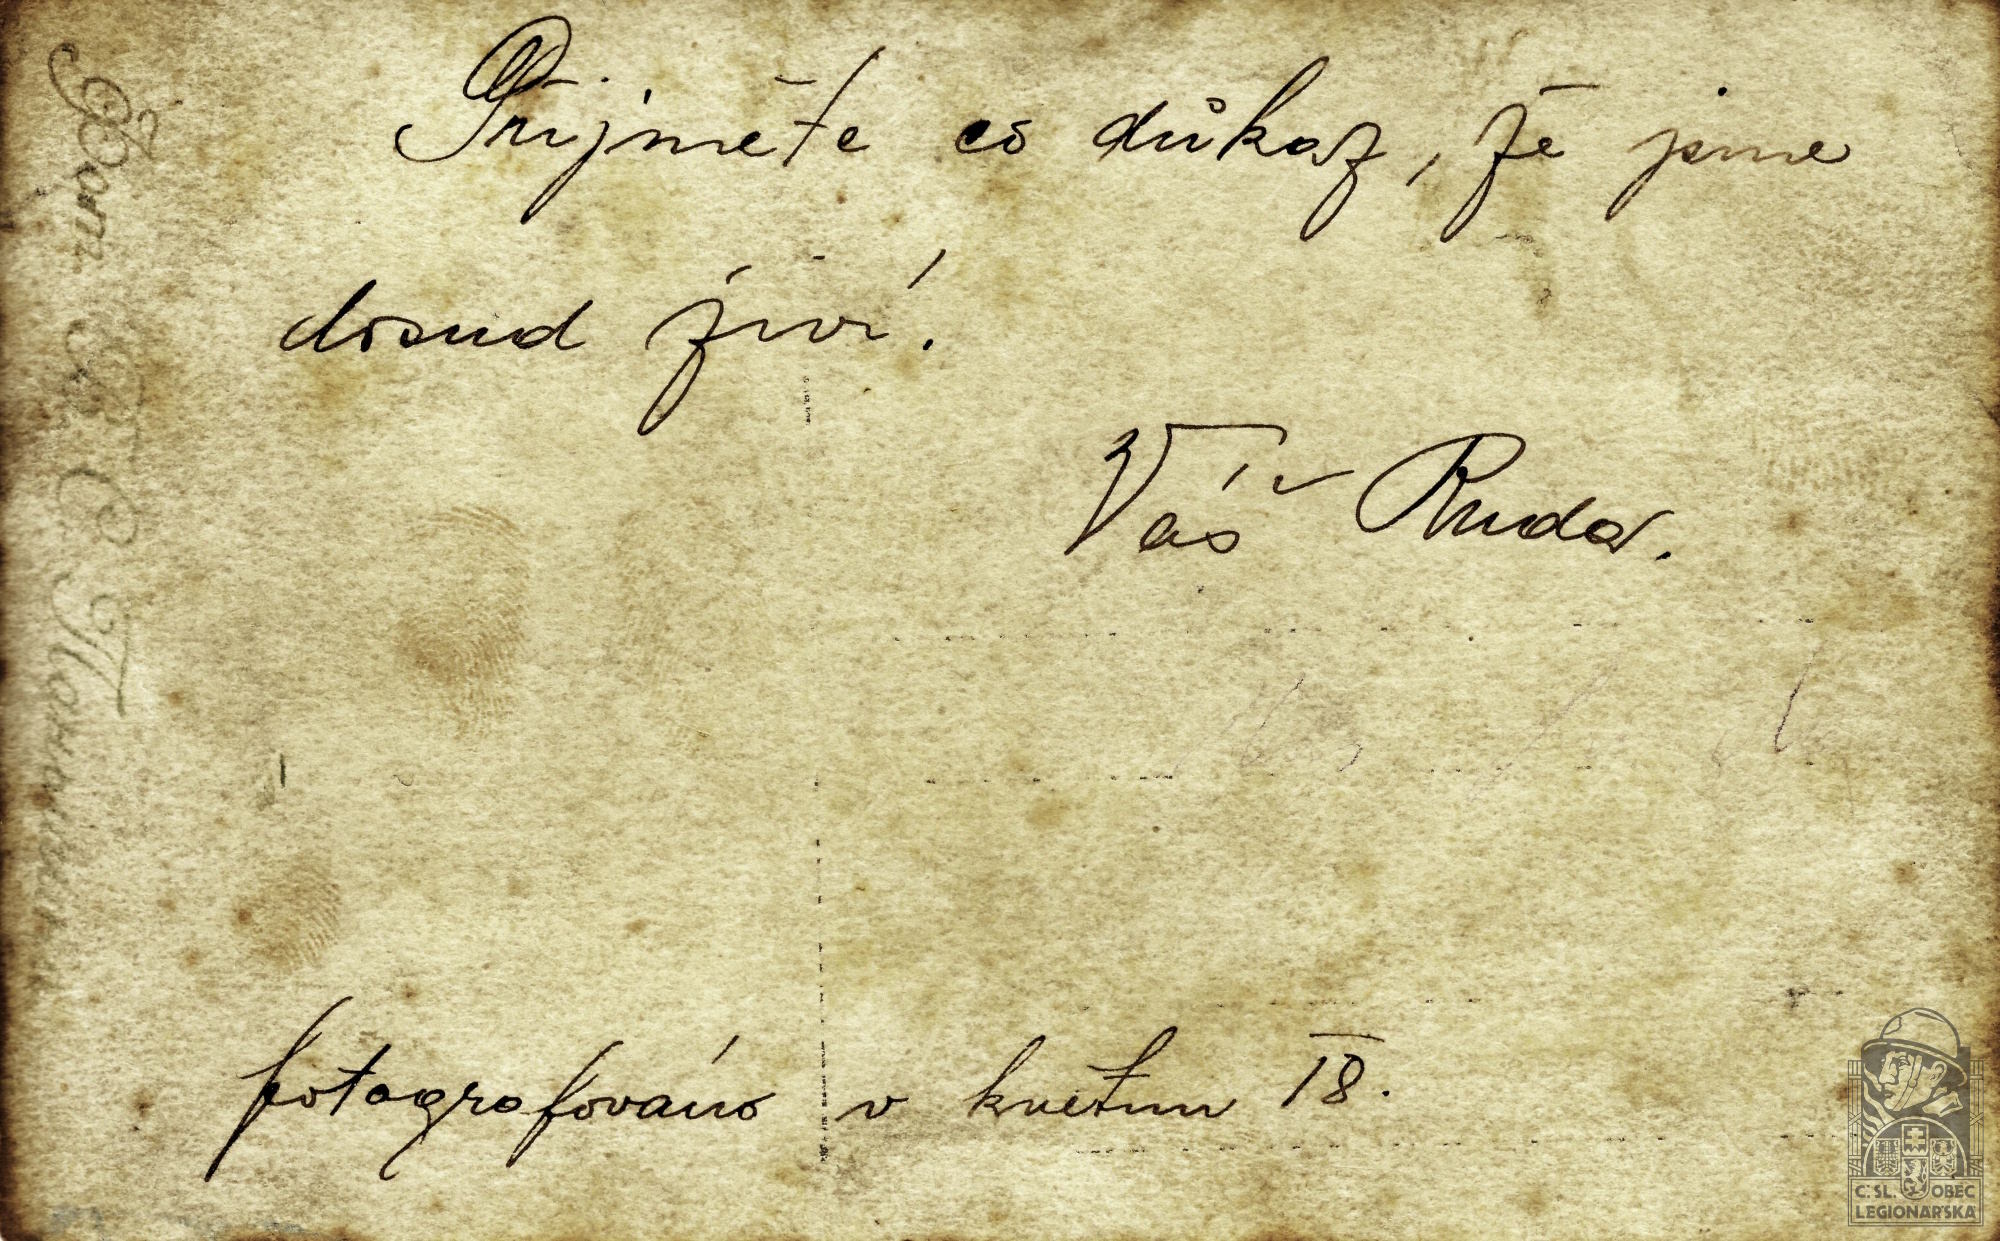 Přijměte co důkaz, že jsme
dosud živí.
Váš Ruda.
fotografováno v květnu 18.
Č. SL. OBEC
LEGIONÁŘSKÁ